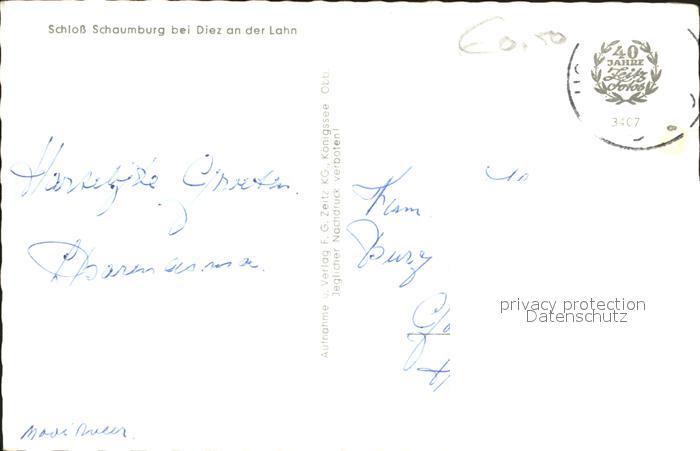 Schloß Schaumburg bei Diez an der Lahn
€0,50
40
JAHRE
Zeitz
Fotos
3407
Hartelijke Groeten.
Aufnahme u. Verlag F. G. Zeitz KG., Königssee Obb.
Jeglicher Nachdruck verboten!
Fam.
Burg
privacy protection
Datenschutz
Mooi weer.